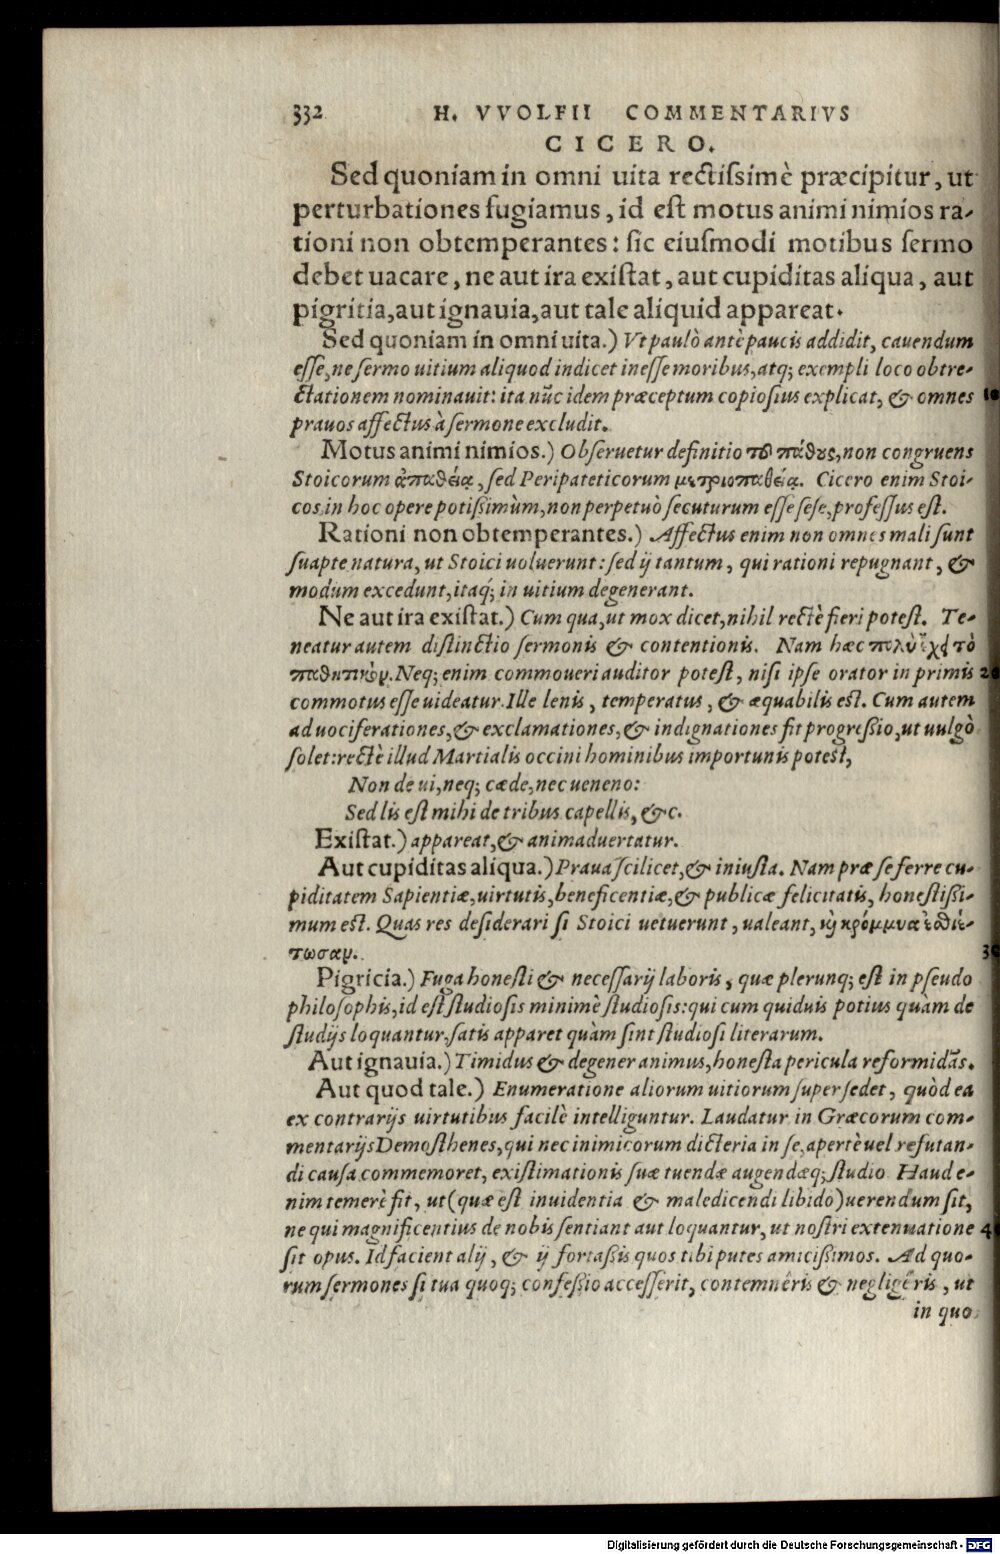 332 H. VVOLFII COMMENTARIVS
CICERO.
Sed quoniam in omni uita rectissimè præcipitur, ut
perturbationes fugiamus, id est motus animi nimios ra-
tioni non obtemperantes: sic eiusmodi motibus sermo
debet uacare, ne aut ira existat, aut cupiditas aliqua, aut
pigritia, aut ignauia, aut tale aliquid appareat.
Sed quoniam in omni uita.) Vt paulò antè paucis addidit, cauendum
esse, ne sermo uitium aliquod indicet inesse moribus, atq; exempli loco obtre-
ctationem nominauit: ita nūc idem præceptum copiosius explicat, & omnes 10
prauos affectus à sermone excludit.
Motus animi nimios.) Obseruetur definitio τοῦ πάθους, non congruens
Stoicorum ἀπαθείᾳ, sed Peripateticorum μετριοπαθείᾳ. Cicero enim Stoi-
cos in hoc opere potißimùm, non perpetuò secuturum esse sese, professus est.
Rationi non obtemperantes.) Affectus enim non omnes mali sunt
suapte natura, ut Stoici uoluerunt: sed ij tantum, qui rationi repugnant, &
modum excedunt, itaq; in uitium degenerant.
Ne aut ira existat.) Cum qua, ut mox dicet, nihil rectè fieri potest. Te-
neatur autem distinctio sermonis & contentionis. Nam hæc πολὺ ἔχει τὸ
παθητικόν. Neq; enim commoueri auditor potest, nisi ipse orator in primis 20
commotus esse uideatur. Ille lenis, temperatus, & æquabilis est. Cum autem
ad uociferationes, & exclamationes, & indignationes fit progreßio, ut uulgò
solet: rectè illud Martialis occini hominibus importunis potest,
Non de ui, neq; cæde, nec ueneno:
Sed lis est mihi de tribus capellis, &c.
Existat.) appareat, & animaduertatur.
Aut cupiditas aliqua.) Praua scilicet, & iniusta. Nam præ se ferre cu-
piditatem Sapientiæ, uirtutis, beneficentiæ, & publicæ felicitatis, honestißi-
mum est. Quas res desiderari si Stoici uetuerunt, ualeant, καὶ κρόμμυα ἐσθιέ-
τωσαν. 30
Pigricia.) Fuga honesti & necessarij laboris, quæ plerunq; est in pseudo
philosophis, id est studiosis minimè studiosis: qui cum quiduis potius quàm de
studijs loquantur, satis apparet quàm sint studiosi literarum.
Aut ignauia.) Timidus & degener animus, honesta pericula reformidās.
Aut quod tale.) Enumeratione aliorum uitiorum supersedet, quòd ea
ex contrarijs uirtutibus facilè intelliguntur. Laudatur in Græcorum com-
mentarijs Demosthenes, qui nec inimicorum dicteria in se, apertè uel refutan-
di causa commemoret, existimationis suæ tuendæ augendæq; studio. Haud e-
nim temerè fit, ut (quæ est inuidentia & maledicendi libido) uerendum sit,
ne qui magnificentius de nobis sentiant aut loquantur, ut nostri extenuatione 40
sit opus. Id facient alij, & ij fortaßis quos tibi putes amicißimos. Ad quo-
rum sermones si tua quoq; confeßio accesserit, contemnêris & negligêris, ut
in quo
Digitalisierung gefördert durch die Deutsche Forschungsgemeinschaft - DFG